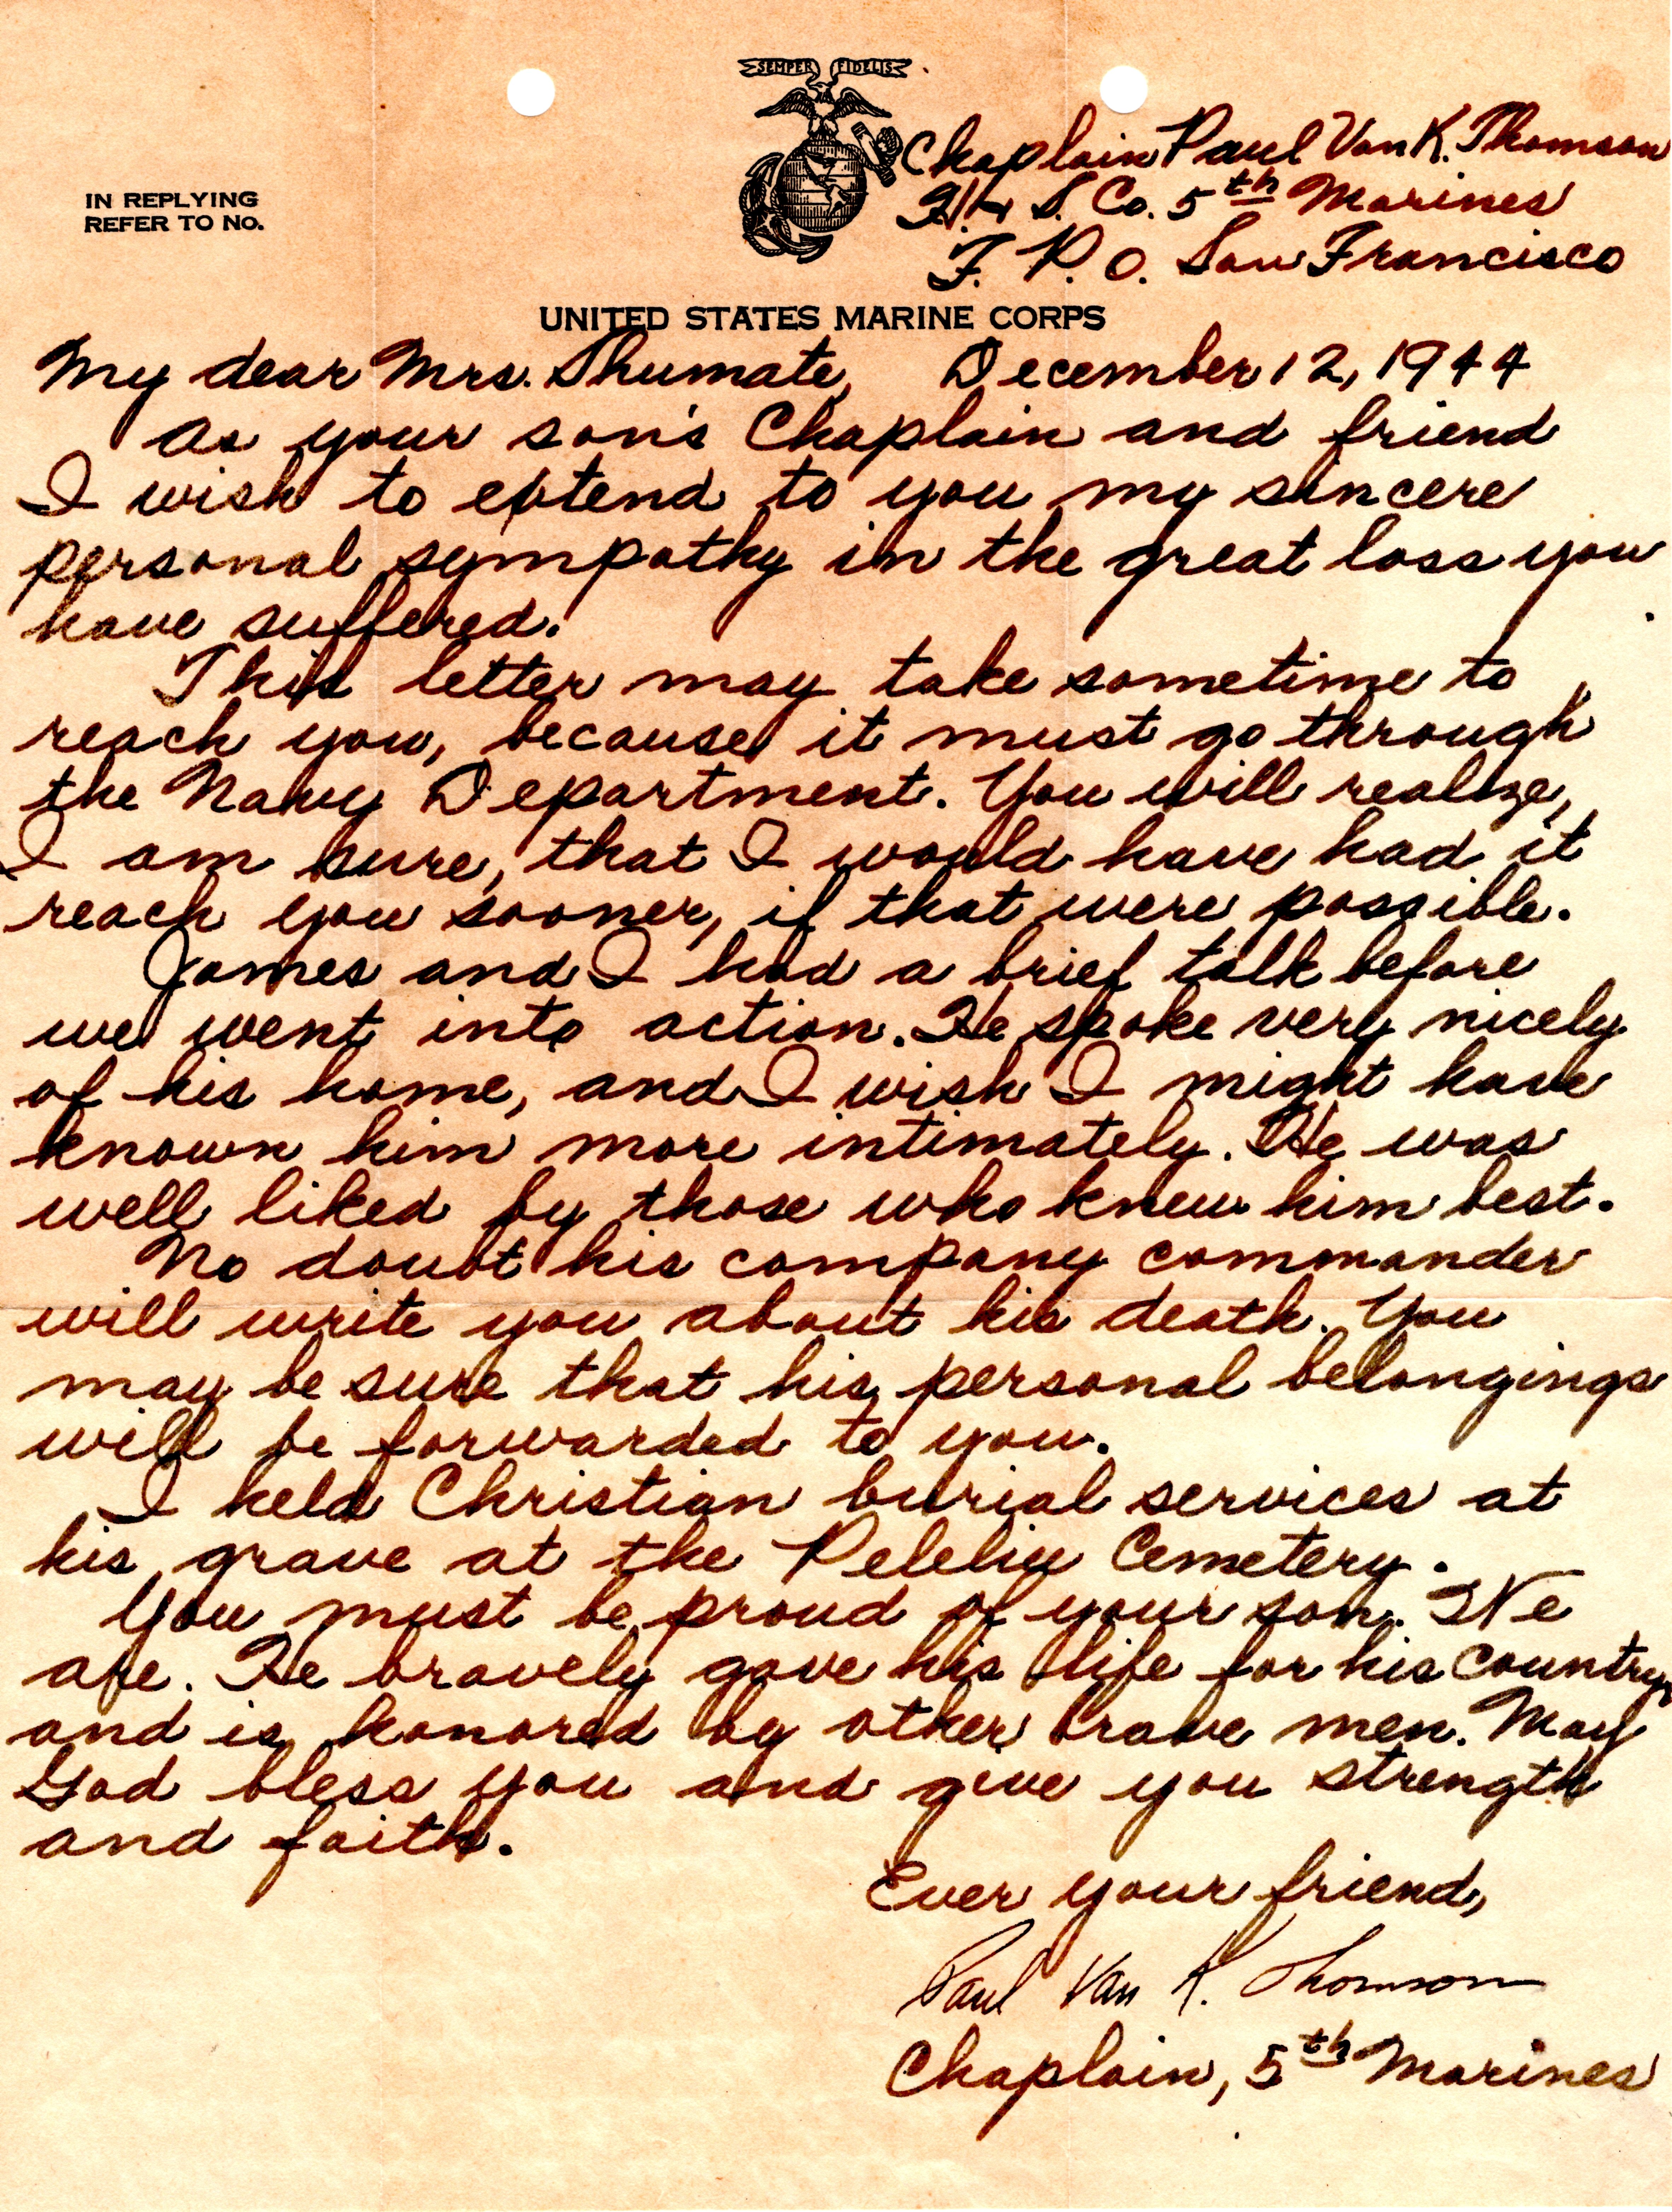 SEMPER FIDELIS
Chaplain Paul Van K. Thomson
H/4 S. Co. 5th Marines
F. P. O. San Francisco
IN REPLYING
REFER TO No.
UNITED STATES MARINE CORPS
My dear Mrs. Shumate, December 12, 1944
As your son's Chaplain and friend
I wish to extend to you my sincere
personal sympathy in the great loss you
have suffered.
This letter may take sometime to
reach you, because it must go through
the Navy Department. You will realize,
I am sure, that I would have had it
reach you sooner, if that were possible.
James and I had a brief talk before
we went into action. He spoke very nicely
of his home, and I wish I might have
known him more intimately. He was
well liked by those who knew him best.
No doubt his company commander
will write you about his death. You
may be sure that his personal belongings
will be forwarded to you.
I held Christian burial services at
his grave at the Peleliu Cemetery.
You must be proud of your son. We
are. He bravely gave his life for his country,
and is honored by other brave men. May
God bless you and give you strength
and faith.
Ever your friend,
Paul Van K. Thomson
Chaplain, 5th Marines